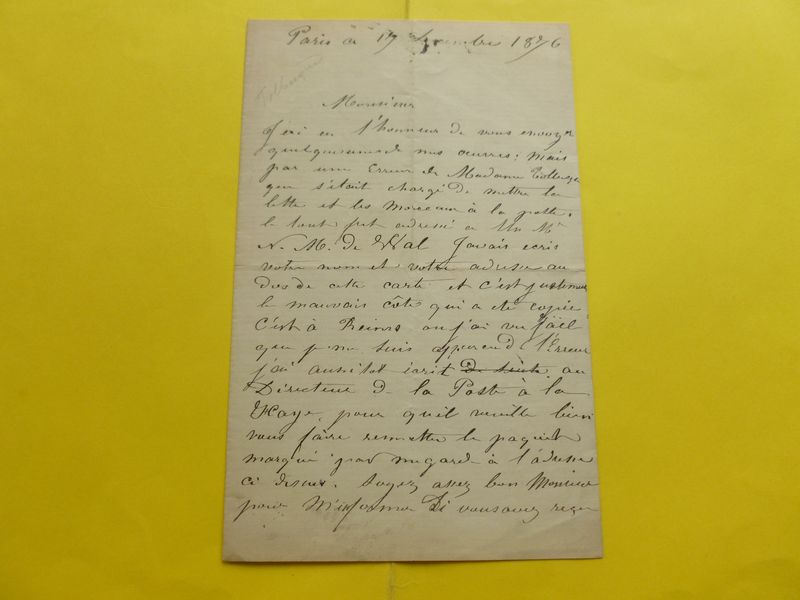 Paris ce 17 Décembre 1876
Monsieur
J'ai eu l'honneur de vous envoyer
quelques unes de nos œuvres: mais
par une Erreur de Madame
qui s'était chargé de mettre la
lettre et les morceaux à la poste,
le tout fut adressé a Un Mr
N. M. de Wal J'avais ecris
votre nom et votre adresse au
dos de cette carte et c'est justement
le mauvais côté qui a été copié
C'est à Reims ou j'ai vu Jaël
que je me suis apperçu de l'Erreur
j'ai aussitot écrit au
Directeur de la Poste à la
Haye, pour qu'il veuille bien
vous faire remettre le paquet
marqué par megarde à l'adresse
ci dessus. Soyez assez bon Monsieur
pour M'informer Si vous avez reçu